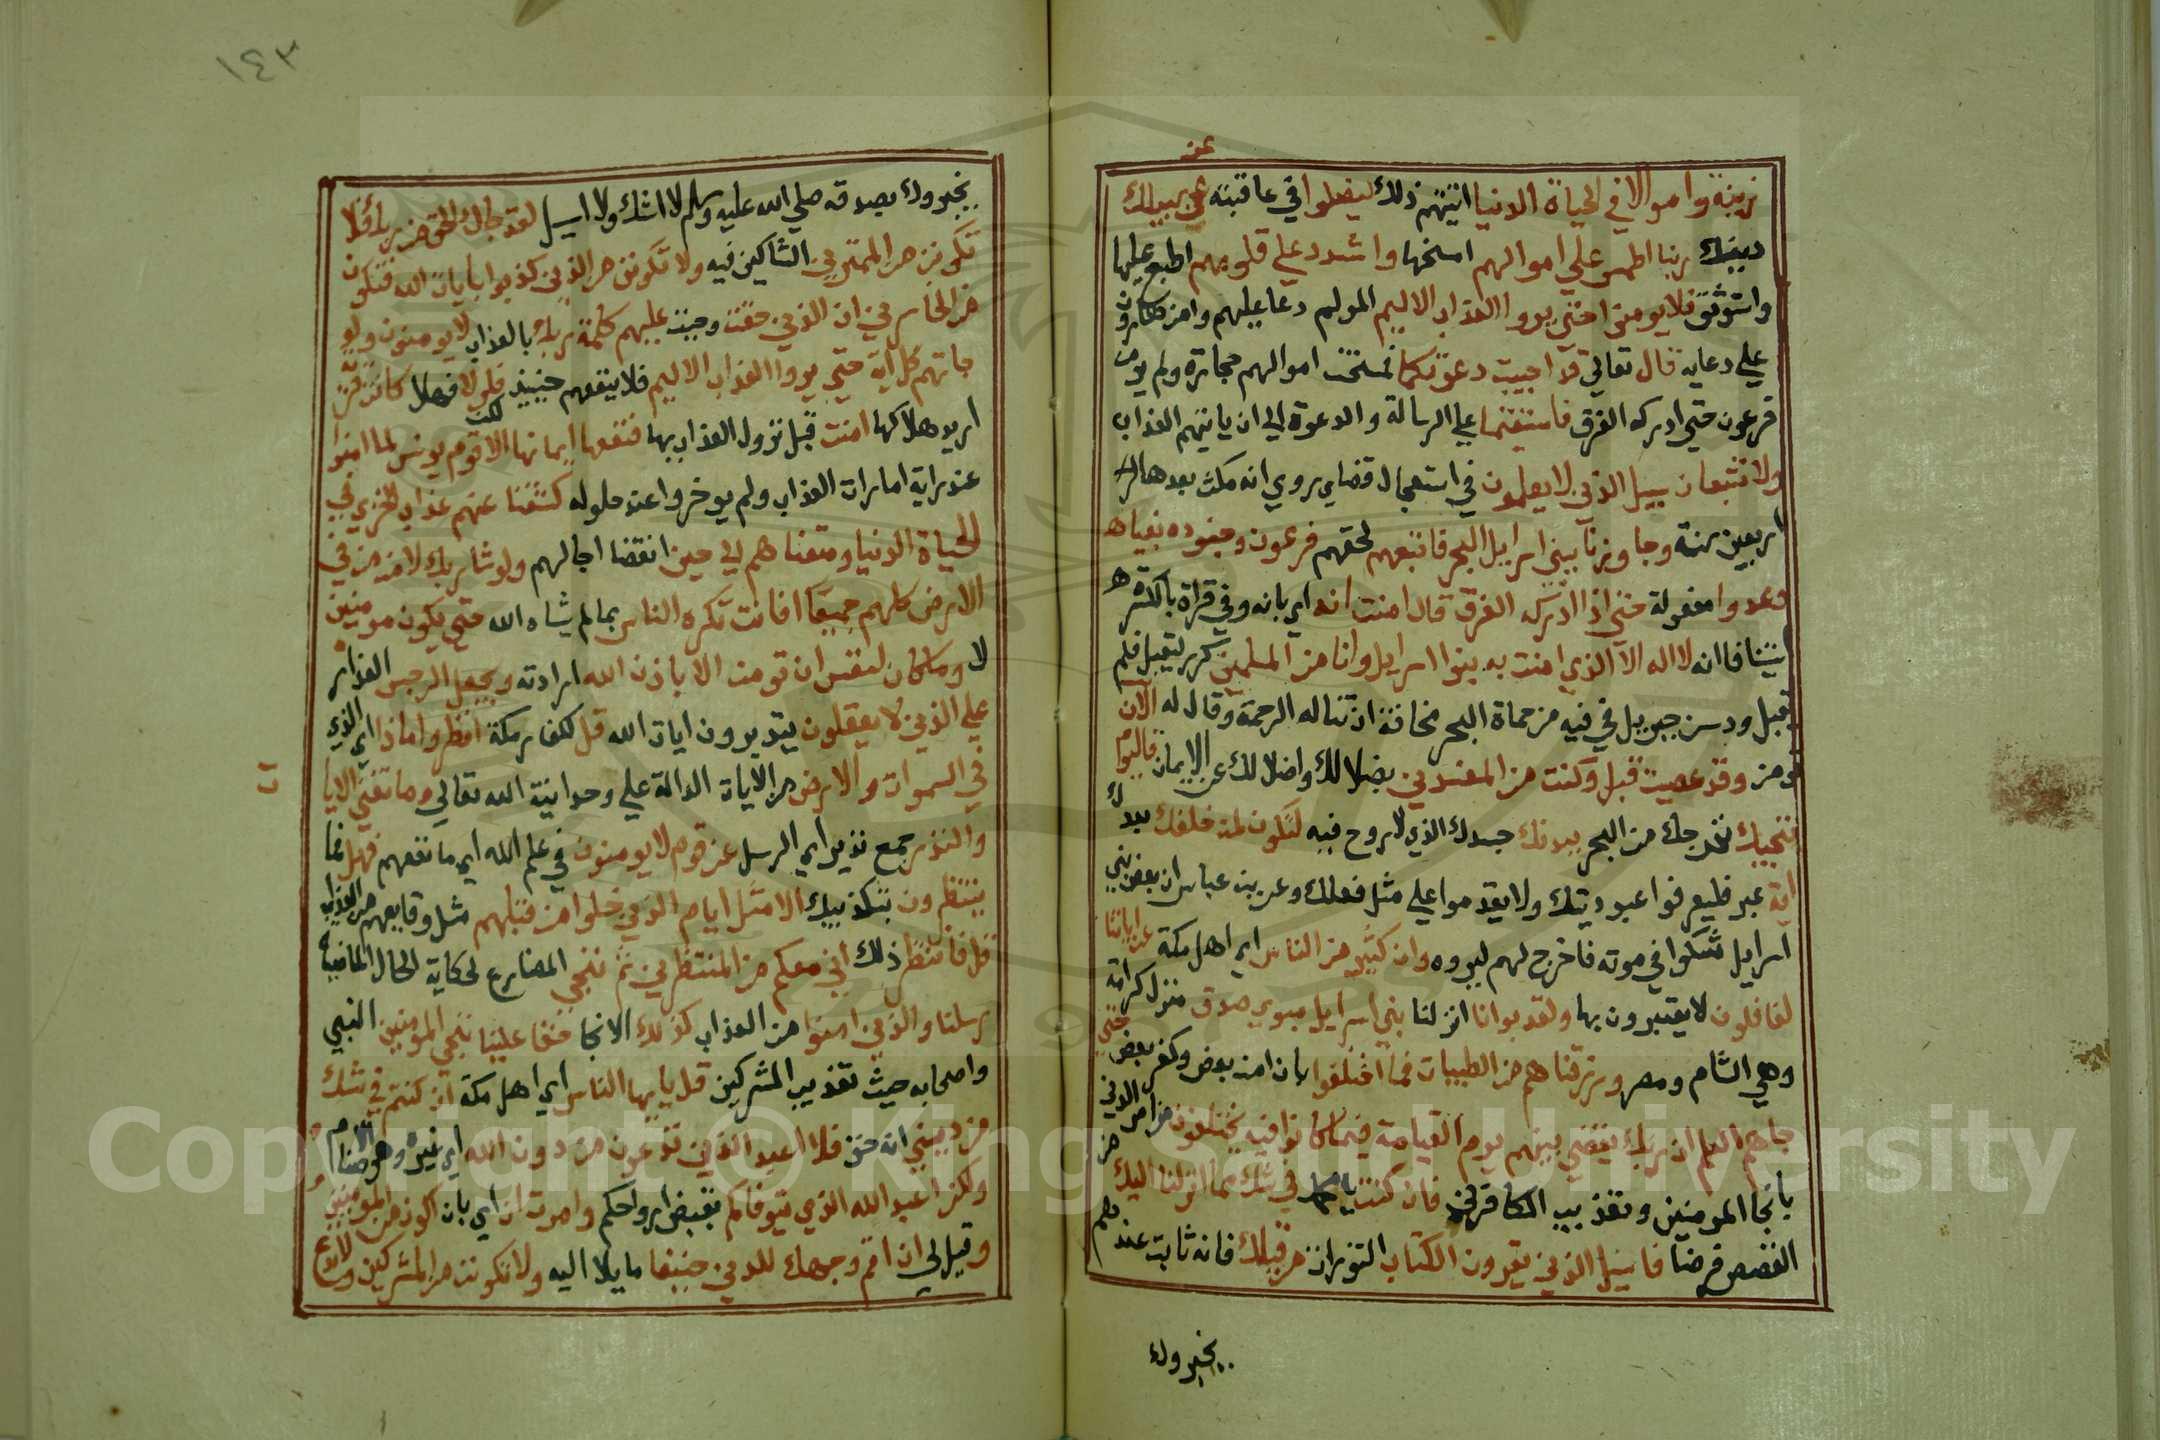 عن
زينة واموالا في الحياة الدنيا اتيتهم ذلك ليضلوا في عاقبته عن سبيلك
دينك ربنا اطمس علي اموالهم امسخها واشدد علي قلوبهم اطبع عليها
واستوثق فلا يومنوا حتي يروا العذاب الاليم المولم دعا عليهم وامن هارون
علي دعايه قال تعالي قد اجيبت دعوتكما فمسخت اموالهم حجارة ولم يومن
فرعون حتي ادركه الغرق فاستقيما علي الرسالة والدعوة الي ان ياتيهم العذاب
ولا تتبعان سبيل الذين لا يعلمون في استعجال قضاي روي انه مكث بعدها
اربعين سنة وجاوزنا ببني اسرايل البحر فاتبعهم لحقهم فرعون وجنوده بغيا
وعدوا مفعول له حتي اذا ادركه الغرق قال امنت انه اي بانه وفي قراة بالكسر
استينافا انه لا اله الا الذي امنت به بنوا اسرايل وانا من المسلمين كرر ليقبل فلم
يقبل ودس جبريل في فيه من حماة البحر مخافة ان تناله الرحمة وقال له الان
تومن وقد عصيت قبل وكنت من المفسدين بضلالك واضلالك عن الايمان فاليوم
ننجيك نخرجك من البحر ببدنك جسدك الذي لا روح فيه لتكون لمن خلفك بعدك
اية عبرة فيعرفوا عبوديتك ولا يقدموا علي مثل فعلك وعن ابن عباس ان بعض بني
اسرايل شكوا في موته فاخرج لهم ليروه وان كثيرا من الناس اي اهل مكة عن اياتنا
لغافلون لا يعتبرون بها ولقد بوانا انزلنا بني اسرايل مبوي صدق منزل كرامة
وهي الشام ومصر ورزقناهم من الطيبات فما اختلفوا بان امن بعض وكفر بعض حتي
جاهم العلم ان ربك يقضي بينهم يوم القيامة فيما كانوا فيه يختلفون من امر الدين
بانجا المومنين وتعذيب الكافرين فان كنت يا محمد في شك مما انزلنا اليك من
القصص فرضا فاسيل الذين يقرون الكتاب التوراة من قبلك فانه ثابت عندهم
يخبروك
١٤٣
يخبروك بصدقه صلي الله عليه وسلم لا اشك ولا اسيل لقد جاك الحق من ربك فلا
تكونن من الممترين الشاكين فيه ولا تكونن من الذين كذبوا بايات الله فتكون
من الخاسرين ان الذين حقت وجبت عليهم كلمة ربك بالعذاب لا يومنون ولو
جاتهم كل اية حتي يروا العذاب الاليم فلا ينفعهم حينيذ فلولا فهلا كانت قرية
اريد هلاكها امنت قبل نزول العذاب بها فنفعها ايمانها الا لكن قوم يونس لما امنوا
عند راية امارات العذاب ولم يوخروا عند حلوله كشفنا عنهم عذاب الخزي في
الحياة الدنيا ومتعناهم الي حين انقضا اجالهم ولو شا ربك لامن من في
الارض كلهم جميعا افانت تكره الناس بما لم يشاه الله حتي يكون مومنين
لا وما كان لنفس ان تومن الا باذن الله ارادته ويجعل الرجس العذاب
علي الذين لا يعقلون يتدبرون ايات الله قل لكفار مكة انظروا ماذا اي الذي
في السموات والارض من الايات الدالة علي وحدانية الله تعالي وما تغني الايات
والنذر جمع نذير اي الرسل عن قوم لا يومنون في علم الله اي ما تنفعهم فهل فما
ينتظرون بتكذيبك الا مثل ايام الذين خلوا من قبلهم مثل وقايعهم من العذاب
قل فانتظروا ذلك اني معكم من المنتظرين ثم ننجي المضارع لحكاية الحال الماضية
رسلنا والذين امنوا من العذاب كذلك الانجا حقا علينا ننجي المومنين النبي
واصحابه حيث تعذيب المشركين قل يايها الناس اي اهل مكة ان كنتم في شك
من ديني انه حق فلا اعبد الذين تدعون من دون الله اي غيره وهو الاصنام
ولكن اعبد الله الذي يتوفاكم بقبض ارواحكم وامرت ان اي بان اكون من المومنين
وقيل لي ان اقم وجهك للدين حنيفا مايلا اليه ولا تكونن من المشركين ولا تدع